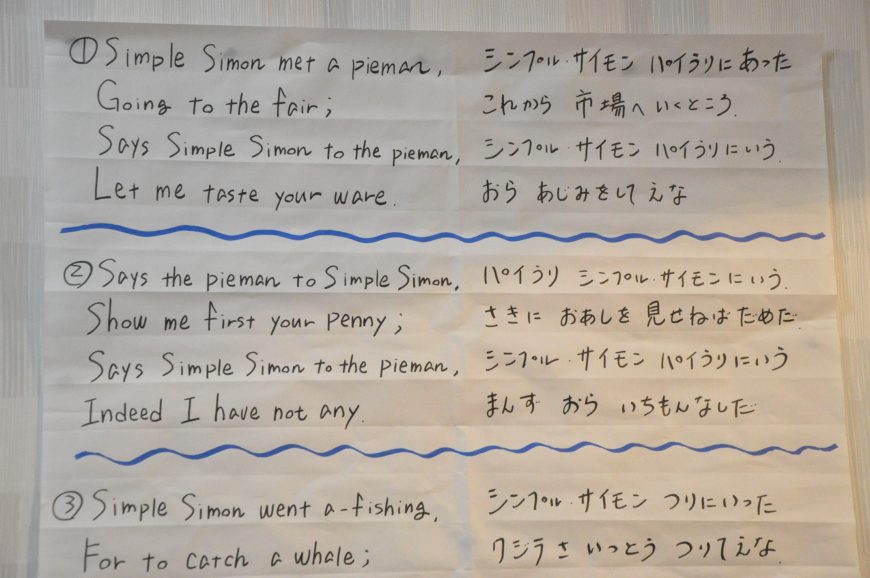 ① Simple Simon met a pieman, シンプル・サイモン パイうりにあった
Going to the fair; これから 市場へ いくところ.
Says Simple Simon to the pieman, シンプル・サイモン パイうりにいう.
Let me taste your ware. おら あじみをして えな
② Says the pieman to Simple Simon, パイうり シンプル・サイモンにいう.
Show me first your penny; さきに おあしを 見せねば だめだ
Says Simple Simon to the pieman, シンプル・サイモン パイうりにいう
Indeed I have not any. まんず おら いちもんなしだ
③ Simple Simon went a-fishing, シンプル・サイモン つりにいった
For to catch a whale; クジラさ いっとう つりてえな.